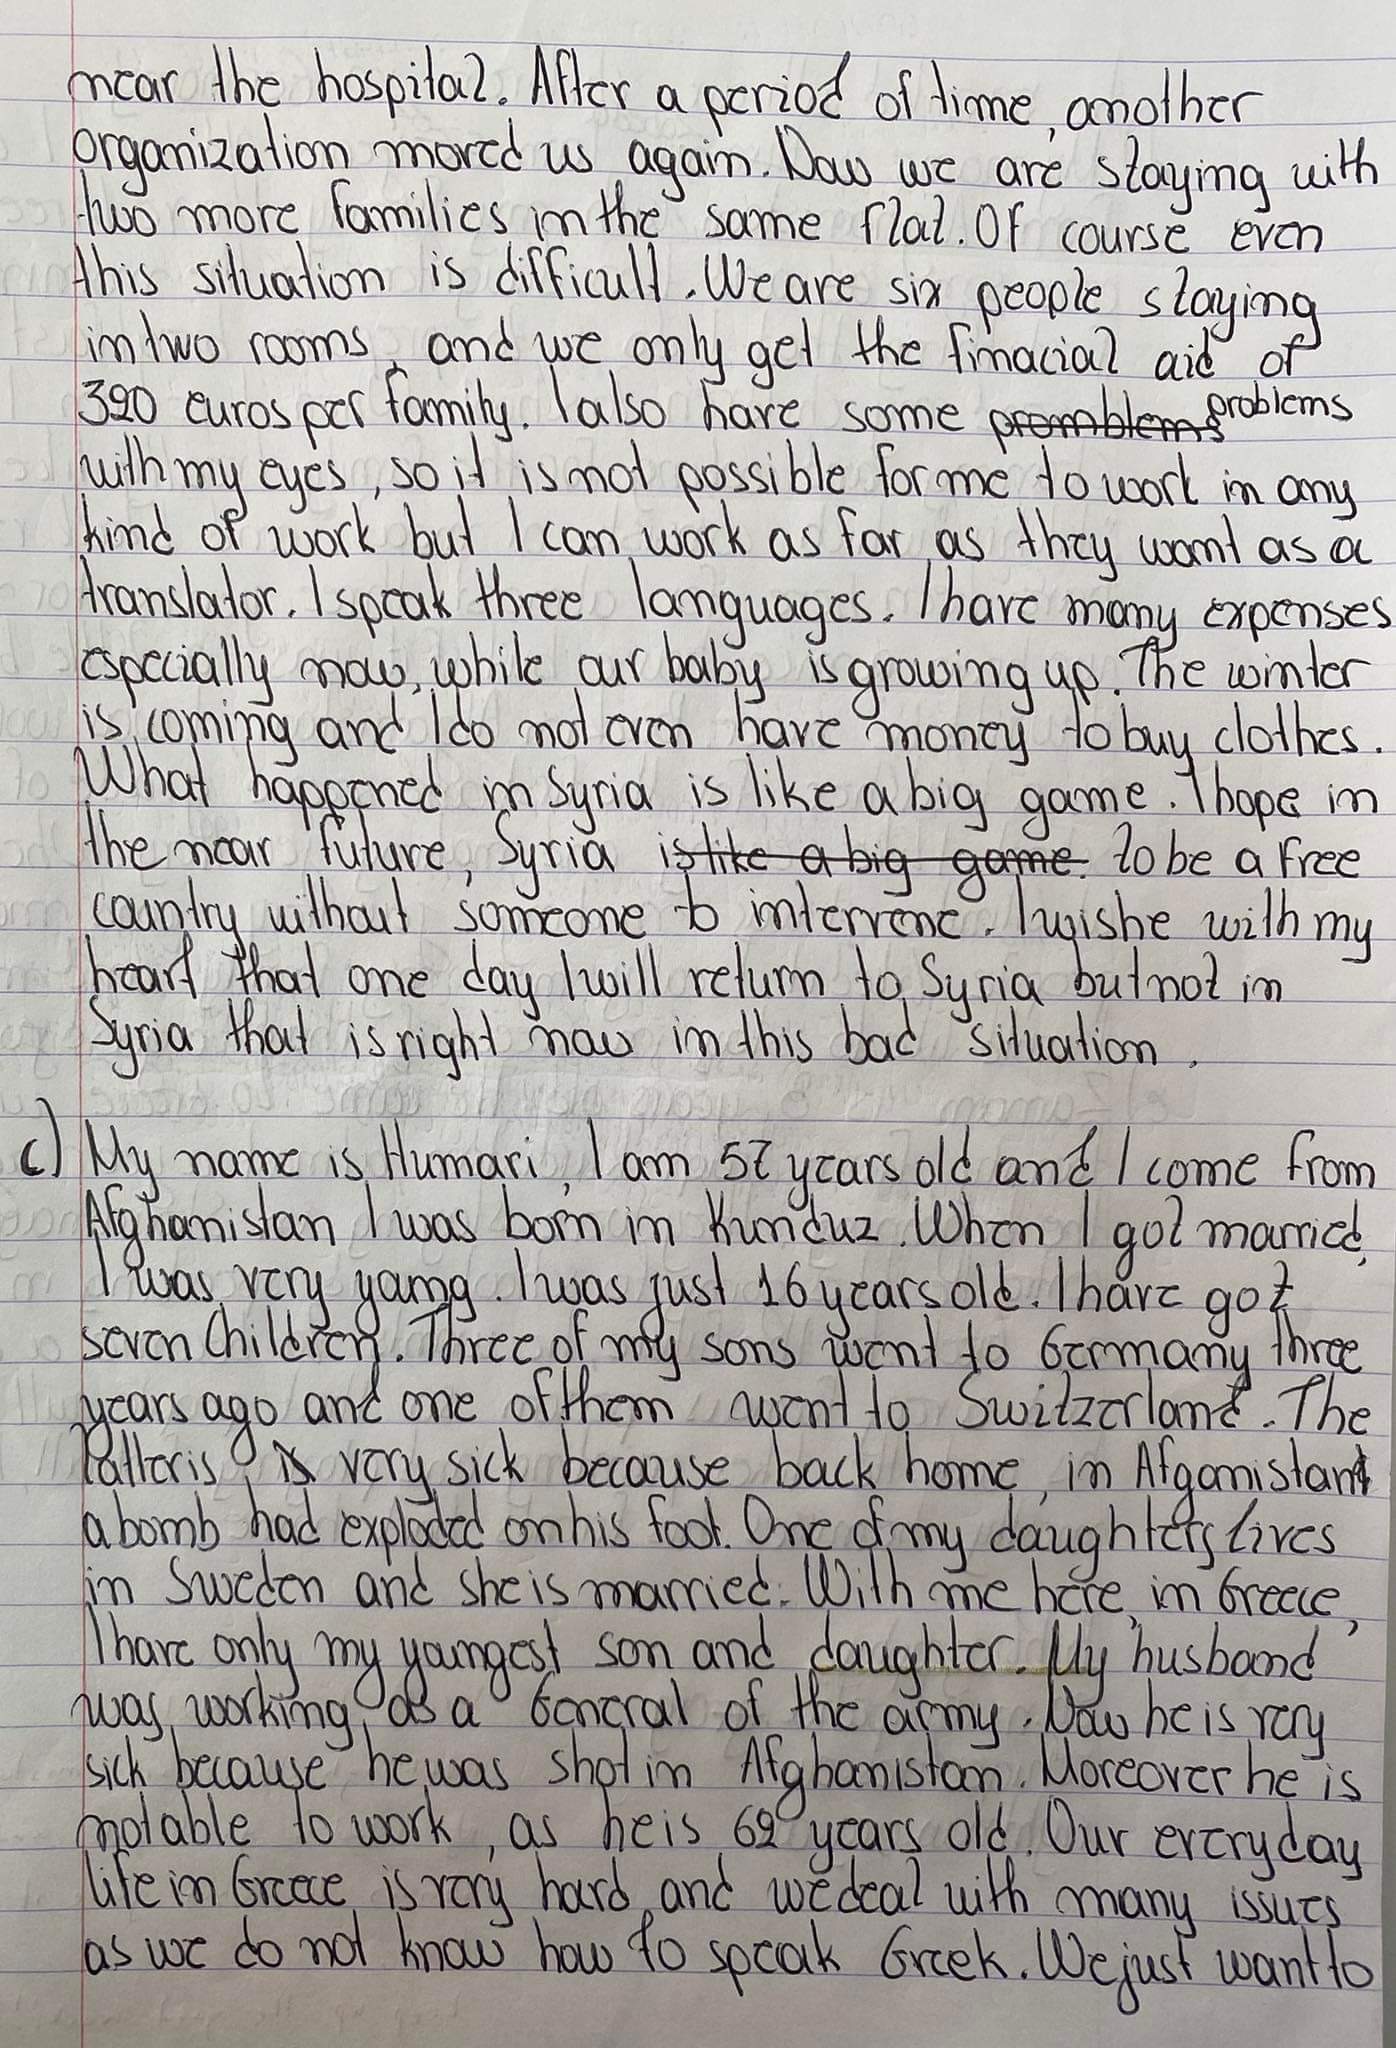 near the hospital. After a period of time, another
organization moved us again. Now we are staying with
two more families in the same flat. Of course even
this situation is difficult. We are six people staying
in two rooms, and we only get the finacial aid of
320 euros per family. I also have some promblems problems
with my eyes, so it is not possible for me to work in any
kind of work but I can work as far as they want as a
translator. I speak three languages. I have many expenses
especially now, while our baby is growing up. The winter
is coming and I do not even have money to buy clothes.
What happened in Syria is like a big game. I hope in
the near future, Syria is like a big game. to be a free
country without someone to intervene. I wishe with my
heart that one day I will return to Syria but not in
Syria that is right now in this bad situation.
c) My name is Humari, I am 57 years old and I come from
Afghanistan I was born in Kunduz. When I got married,
I was very yamg. I was just 16 years old. I have got
seven Children. Three of my sons went to Germany three
years ago and one of them went to Switzerland. The
latter is is very sick because back home, in Afganistan
a bomb had exploded on his foot. One of my daughters lives
in Sweden and she is married. With me here, in Greece,
I have only my youngest son and daughter. My husband
was working as a General of the army. Now he is very
sick because he was shot in Afghanistan. Moreover he is
not able to work, as he is 62 years old. Our everyday
life in Greece is very hard and we deal with many issues
as we do not know how to speak Greek. We just want to